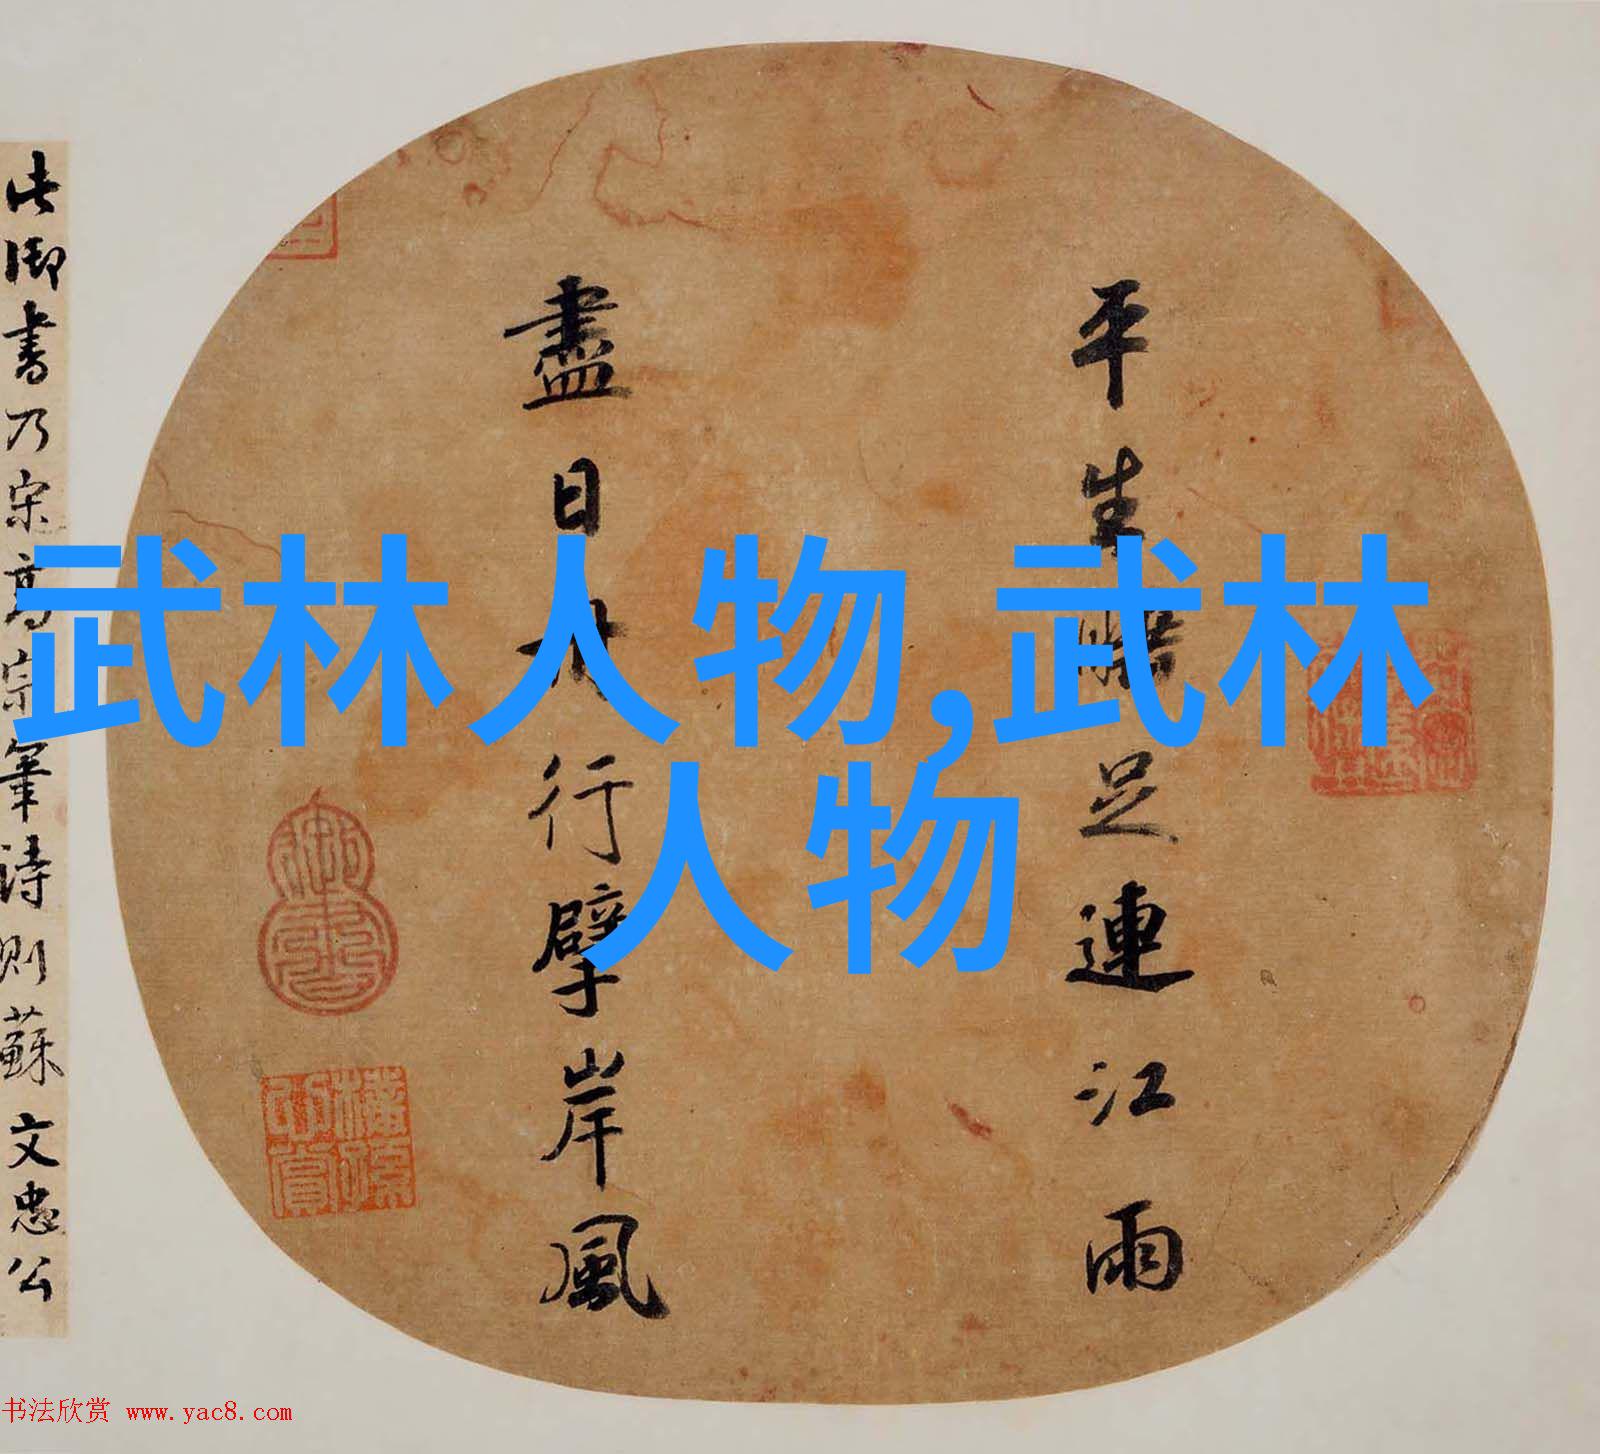 武林人物,武林
人物
平生睡足連江雨
盡日舟行擘岸風
此御書乃宋高宗筆詩則蘇文忠公
书法欣赏 www.yac8.com